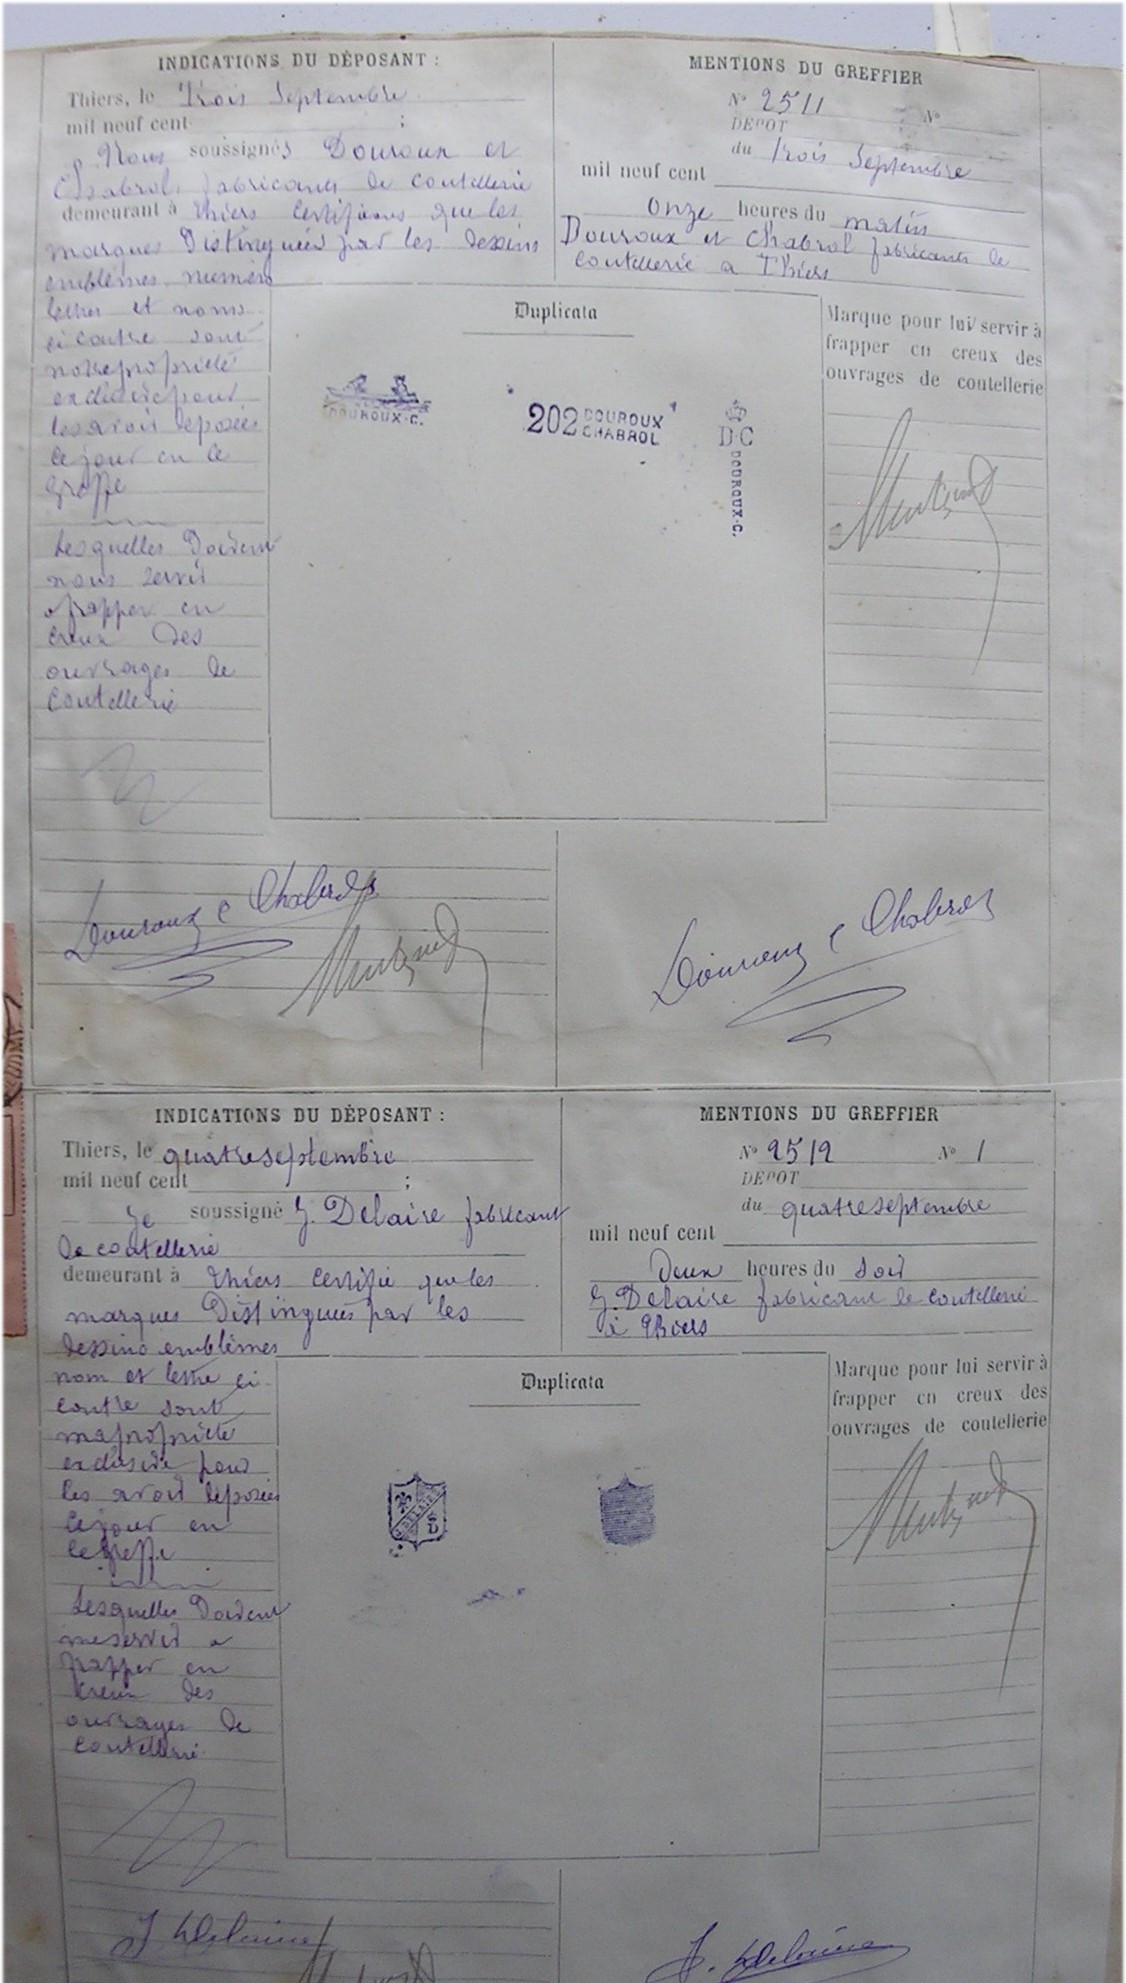 INDICATIONS DU DÉPOSANT :
Thiers, le Trois Septembre
mil neuf cent ;
Nous soussignés Douroux et
Chabrol, fabricants de coutellerie
demeurant à Thiers Certifions que les
marques Distinguées par les dessins
emblèmes numéro
lettres et noms
ci contre sont
notre propriété
exclusive pour
les avoir déposées
ce jour en le
Greffe
Lesquelles Doivent
nous servir
a frapper en
creux Des
ouvrages de
Coutellerie
Douroux & Chabrol
MENTIONS DU GREFFIER
N° 2511 N°
DEPOT
du Trois Septembre
mil neuf cent
Onze heures du matin
Douroux et Chabrol fabricants de
Coutellerie a Thiers
Duplicata
DOUROUX-C.
202 DOUROUX
CHABROL
D·C
DOUROUX-C.
Marque pour lui servir à
frapper en creux des
ouvrages de coutellerie
Douroux & Chabrol
INDICATIONS DU DÉPOSANT :
Thiers, le quatre septembre
mil neuf cent ;
Je soussigné J. Delaire fabricant
de coutellerie
demeurant à Thiers Certifie que les
marques Distinguées par les
dessins emblèmes
nom et lettre ci
contre sont
ma propriété
exclusive pour
les avoir déposées
ce jour en
le Greffe
Lesquelles Doivent
me servir a
frapper en
creux des
ouvrages de
Coutellerie
J. Delaire
MENTIONS DU GREFFIER
N° 2512 N° 1
DEPOT
du quatre septembre
mil neuf cent
Deux heures du Soir
J. Delaire fabricant de Coutellerie
à Thiers
Duplicata
DELAIRE
D
Marque pour lui servir à
frapper en creux des
ouvrages de coutellerie
J. Delaire